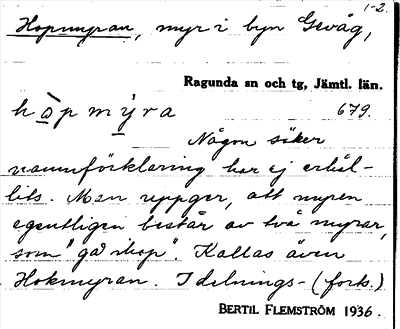 1-2.
Hopmyran, myr i byn Gevåg,
Ragunda sn och tg, Jämtl. län.
hò̱p mý̱ra 679.
Någon säker
namnförklaring har ej erhål-
lits. Man uppger, att myren
egentligen består av två myrar,
som "ga ihop". Kallas även
Hokmyran. I delnings- (forts.)
BERTIL FLEMSTRÖM 1936.